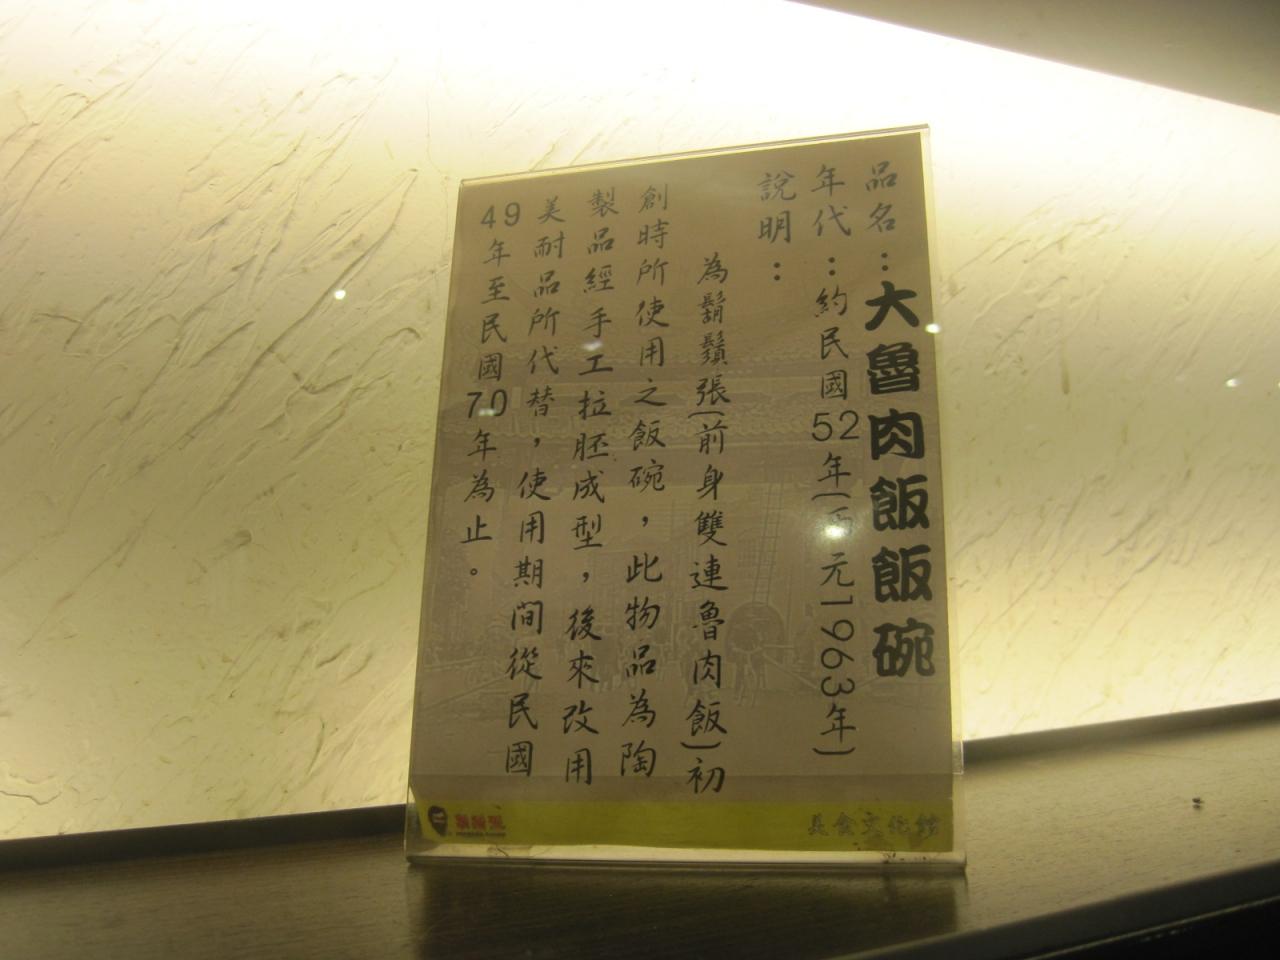 品名：大魯肉飯飯碗
年代：約民國52年(西元1963年)
說明：
為鬍鬚張(前身雙連魯肉飯)初
創時所使用之飯碗，此物品為陶
製品經手工拉胚成型，後來改用
美耐品所代替，使用期間從民國
49年至民國70年為止。
鬍鬚張
美食文化館